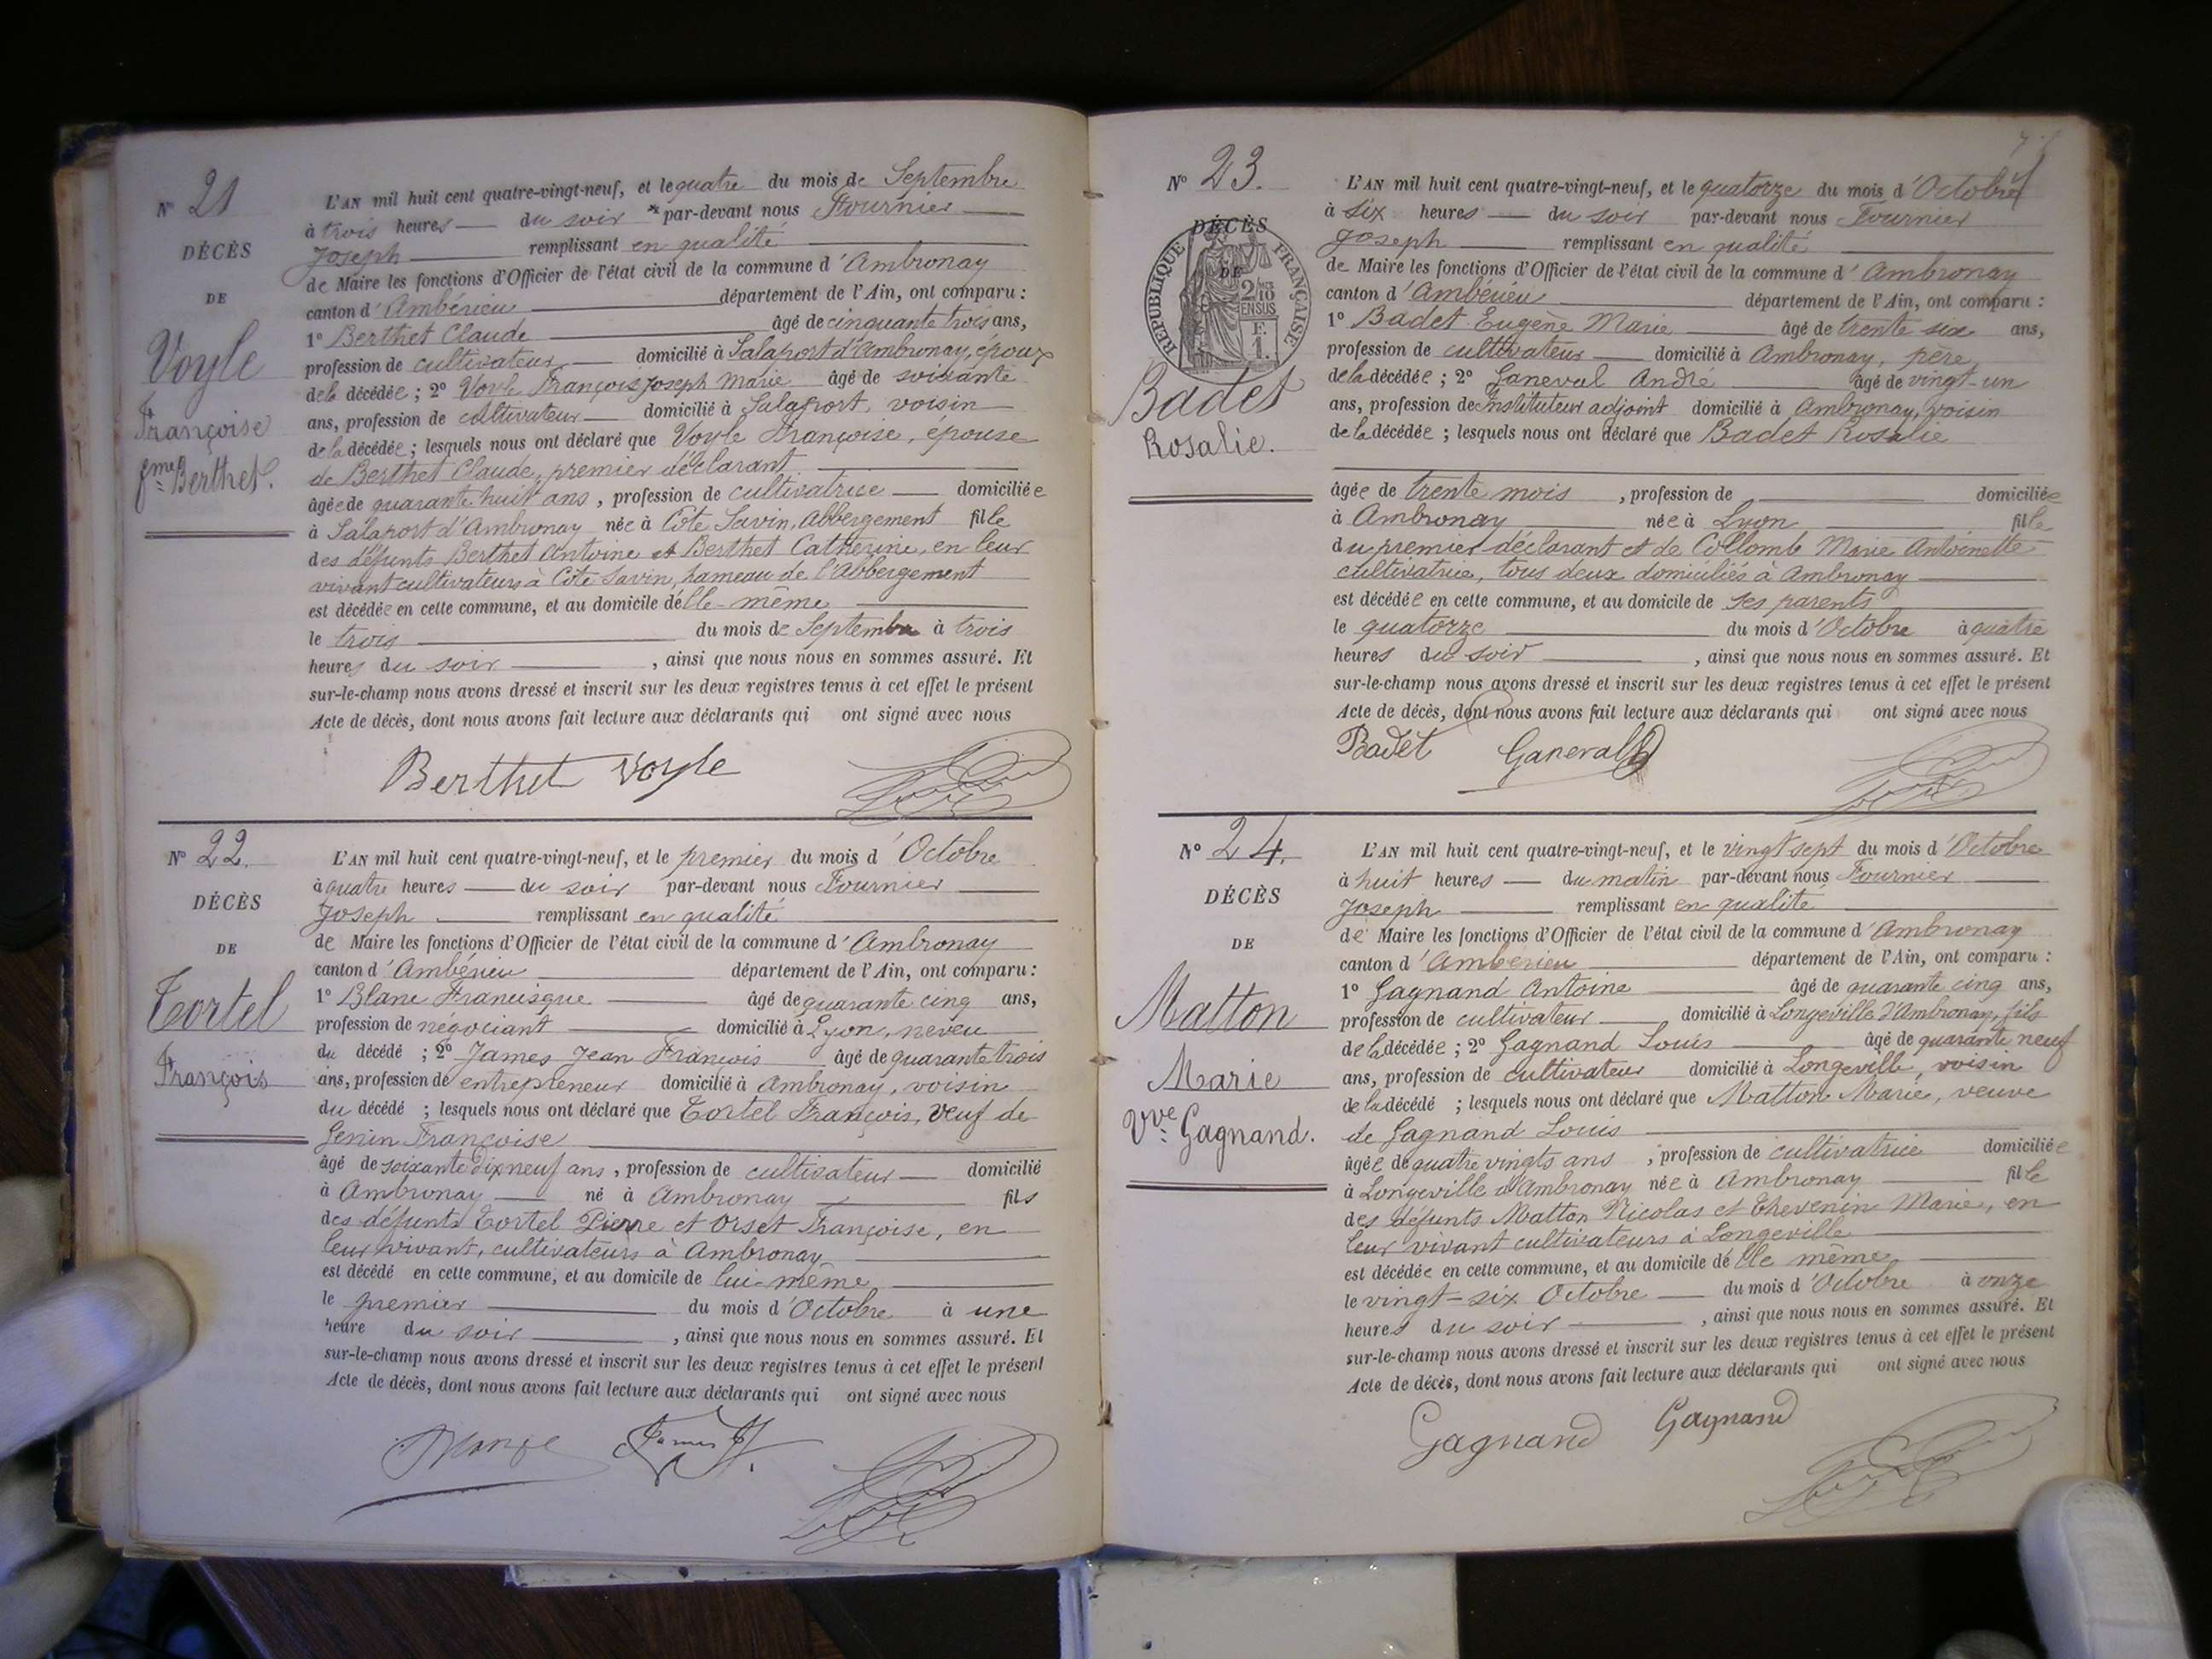 N° 21
DÉCÈS
DE
Voyle
Françoise
fme Berthet.
L'AN mil huit cent quatre-vingt-neuf, et le quatre du mois de Septembre
à trois heures du soir par-devant nous Fournier
Joseph remplissant en qualité
de Maire les fonctions d'Officier de l'état civil de la commune d'Ambronay
canton d'Ambérieu département de l'Ain, ont comparu :
1° Berthet Claude âgé de cinquante trois ans,
profession de cultivateur domicilié à Salaport d'Ambronay, époux
de la décédée ; 2° Voyle François Joseph Marie âgé de soixante
ans, profession de cultivateur domicilié à Salaport, voisin
de la décédée ; lesquels nous ont déclaré que Voyle Françoise, épouse
de Berthet Claude, premier déclarant
âgée de quarante huit ans, profession de cultivatrice domiciliée
à Salaport d'Ambronay née à Côte Savin, Abbergement fille
des défunts Berthet Antoine et Berthet Catherine, en leur
vivant cultivateurs à Côte Savin, hameau de l'Abbergement
est décédée en cette commune, et au domicile d'elle-même
le trois du mois de Septembre à trois
heures du soir, ainsi que nous nous en sommes assuré. Et
sur-le-champ nous avons dressé et inscrit sur les deux registres tenus à cet effet le présent
Acte de décès, dont nous avons fait lecture aux déclarants qui ont signé avec nous
Berthet Voyle
N° 22.
DÉCÈS
DE
Tortel
François
L'AN mil huit cent quatre-vingt-neuf, et le premier du mois d'Octobre
à quatre heures du soir par-devant nous Fournier
Joseph remplissant en qualité
de Maire les fonctions d'Officier de l'état civil de la commune d'Ambronay
canton d'Ambérieu département de l'Ain, ont comparu :
1° Blanc Francisque âgé de quarante cinq ans,
profession de négociant domicilié à Lyon, neveu
du décédé ; 2° James Jean François âgé de quarante trois
ans, profession de entrepreneur domicilié à Ambronay, voisin
du décédé ; lesquels nous ont déclaré que Tortel François, veuf de
Genin Françoise
âgé de soixante dix neuf ans, profession de cultivateur domicilié
à Ambronay né à Ambronay fils
des défunts Tortel Pierre et Orset Françoise, en
leur vivant, cultivateurs à Ambronay
est décédé en cette commune, et au domicile de lui-même
le premier du mois d'Octobre à une
heure du soir, ainsi que nous nous en sommes assuré. Et
sur-le-champ nous avons dressé et inscrit sur les deux registres tenus à cet effet le présent
Acte de décès, dont nous avons fait lecture aux déclarants qui ont signé avec nous
James
N° 23.
DÉCÈS
DE
RÉPUBLIQUE FRANÇAISE
2/10 EN SUS
F. 1.
Badet
Rosalie.
L'AN mil huit cent quatre-vingt-neuf, et le quatorze du mois d'Octobre
à six heures du soir par-devant nous Fournier
Joseph remplissant en qualité
de Maire les fonctions d'Officier de l'état civil de la commune d'Ambronay
canton d'Ambérieu département de l'Ain, ont comparu :
1° Badet Eugène Marie âgé de trente six ans,
profession de cultivateur domicilié à Ambronay, père
de la décédée ; 2° Ganeval André âgé de vingt-un
ans, profession de Instituteur adjoint domicilié à Ambronay, voisin
de la décédée ; lesquels nous ont déclaré que Badet Rosalie
âgée de trente mois, profession de domiciliée
à Ambronay née à Lyon fille
du premier déclarant et de Collomb Marie Antoinette
cultivatrice, tous deux domiciliés à Ambronay
est décédée en cette commune, et au domicile de ses parents
le quatorze du mois d'Octobre à quatre
heures du soir, ainsi que nous nous en sommes assuré. Et
sur-le-champ nous avons dressé et inscrit sur les deux registres tenus à cet effet le présent
Acte de décès, dont nous avons fait lecture aux déclarants qui ont signé avec nous
Badet Ganeval
N° 24.
DÉCÈS
DE
Matton
Marie
Vve Gagnand.
L'AN mil huit cent quatre-vingt-neuf, et le vingt sept du mois d'Octobre
à huit heures du matin par-devant nous Fournier
Joseph remplissant en qualité
de Maire les fonctions d'Officier de l'état civil de la commune d'Ambronay
canton d'Ambérieu département de l'Ain, ont comparu :
1° Gagnand Antoine âgé de quarante cinq ans,
profession de cultivateur domicilié à Longeville d'Ambronay, fils
de la décédée ; 2° Gagnand Louis âgé de quarante neuf
ans, profession de cultivateur domicilié à Longeville, voisin
de la décédé ; lesquels nous ont déclaré que Matton Marie, veuve
de Gagnand Louis
âgée de quatre vingts ans, profession de cultivatrice domiciliée
à Longeville d'Ambronay née à Ambronay fille
des défunts Matton Nicolas et Thevenin Marie, en
leur vivant cultivateurs à Longeville
est décédée en cette commune, et au domicile d'elle même
le vingt-six Octobre du mois d'Octobre à onze
heures du soir, ainsi que nous nous en sommes assuré. Et
sur-le-champ nous avons dressé et inscrit sur les deux registres tenus à cet effet le présent
Acte de décès, dont nous avons fait lecture aux déclarants qui ont signé avec nous
Gagnand Gagnand